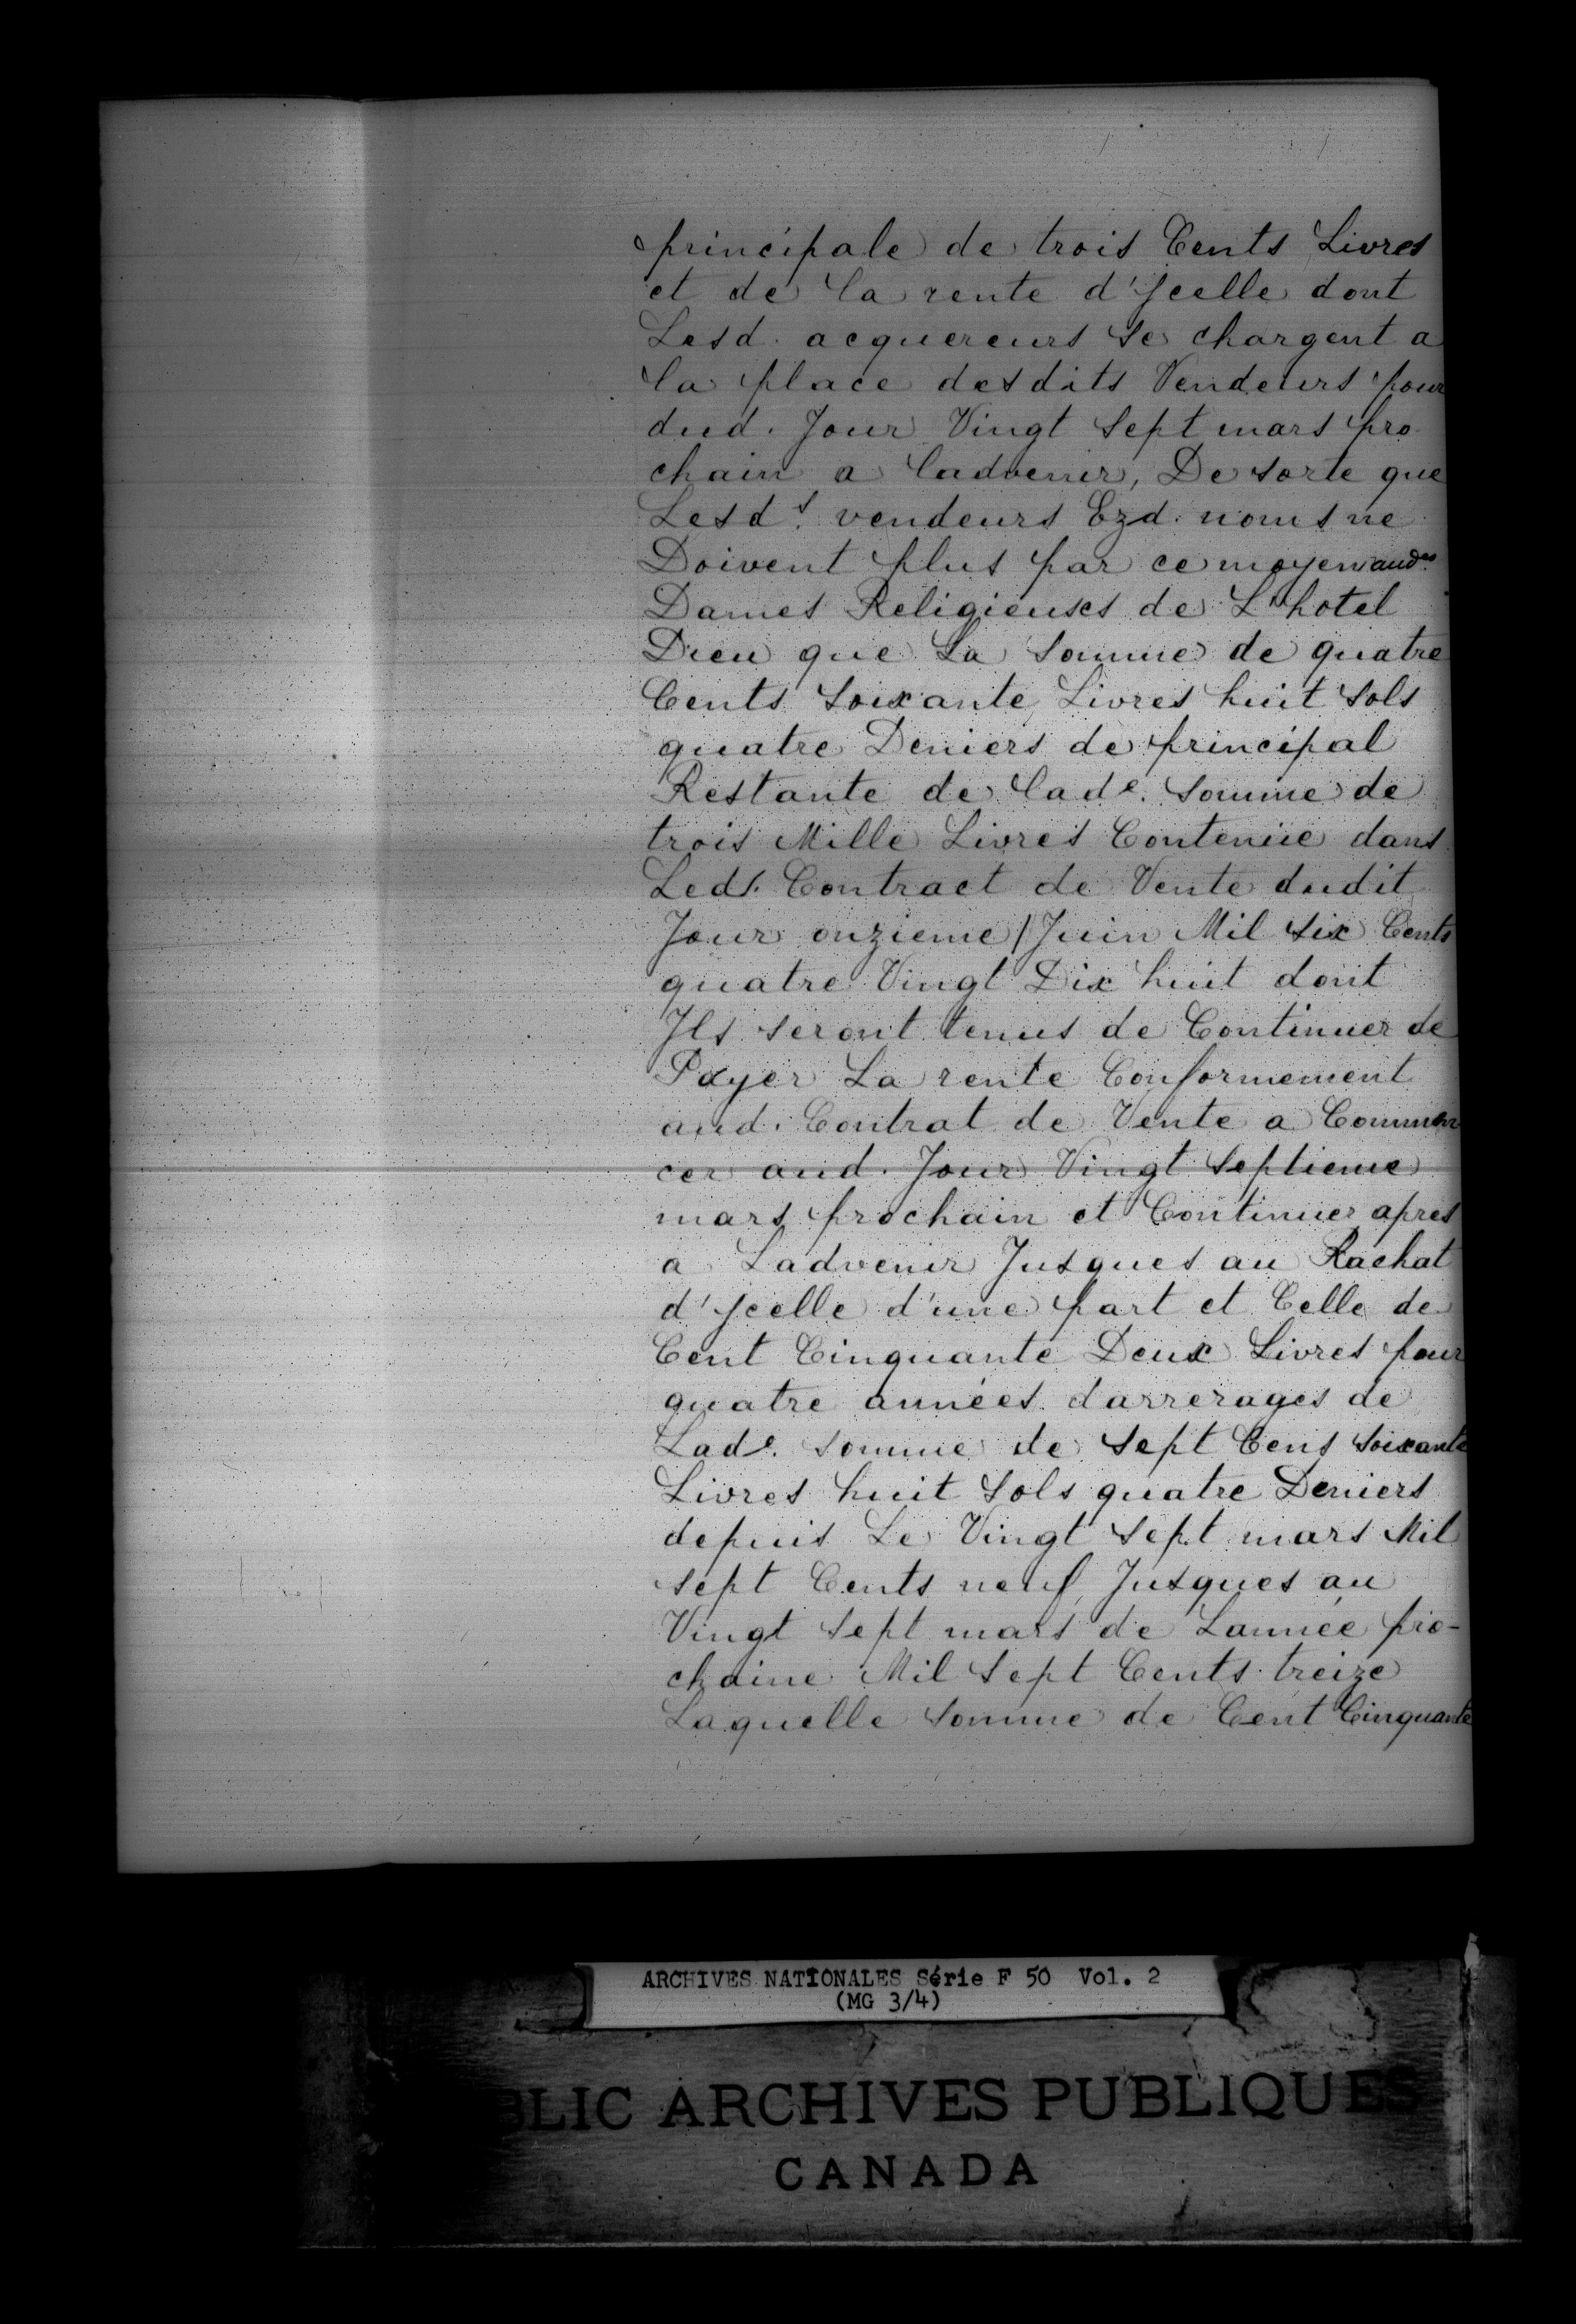 principale de trois Cents Livres
et de la rente d'Jcelle dont
Lesd. acquereurs se chargent a
la place desdits Vendeurs pour
dud. Jour Vingt Sept mars pro
chain a ladvenir, De sorte que
Lesd.s vendeurs Ezd. noms ne
Doivent plus par ce moyen aud.es
Dames Religieuses de L'hotel
Dieu que La Somme de quatre
Cents Soixante Livres huit Sols
quatre Deniers de principal
Restante de lad.e Somme de
trois Mille Livres Contenüe dans
Led.t Contract de Vente dudit
Jour onzieme Juin Mil Six Cents
quatre Vingt Dix huit dont
Jls seront tenus de Continuer de
Payer La rente Conformement
aud. Contrat de Vente a Commen
cer aud. Jour Vingt Septieme
mars prochain et Continuer apres
a Ladvenir Jusques au Rachat
d'Jcelle d'une part et Celle de
Cent Cinquante Deux Livres pour
quatre années darrerages de
Lad.e Somme de Sept Cens Soixante
Livres huit Sols quatre Deniers
depuis Le Vingt Sept mars Mil
sept Cents neuf Jusques au
Vingt Sept mars de Lannée pro-
chaine Mil Sept Cents treize
Laquelle Somme de Cent Cinquante
ARCHIVES NATIONALES Série F 50 Vol. 2
(MG 3/4)
BLIC ARCHIVES PUBLIQUES
CANADA